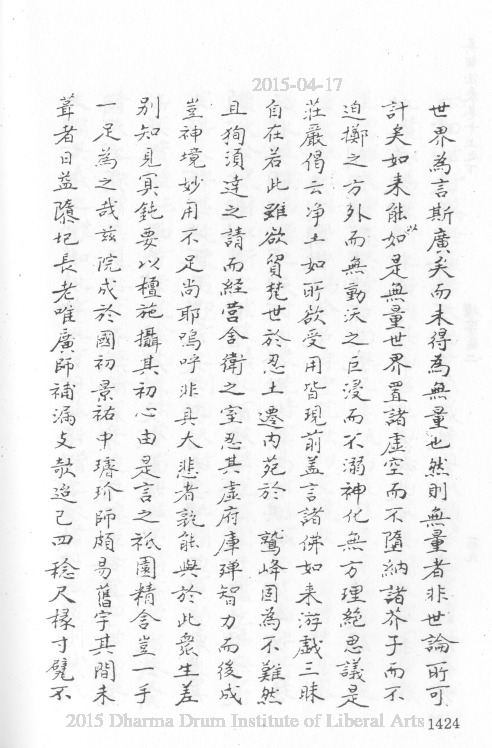 2015-04-17
世界為言斯廣矣而未得為無量也然則無量者非世論所可
計矣如来能以如是無量世界置諸虛空而不墮納諸芥子而不
迫擲之方外而無動沃之巨浸而不溺神化無方理絕思議是
莊嚴偈云淨土如所欲受用皆現前盖言諸佛如来游戲三昧
自在若此雖欲貿梵世於忍土遷內苑於 鷲峰固為不難然
且狥須達之請而經营舍衛之室忍其虛府庫殫智力而後成
豈神境妙用不足尚耶嗚呼非具大悲者孰能與於此衆生差
別知見冥鈍要以檀施攝其初心由是言之祇園精舍豈一手
一足為之哉兹院成於國初景祐中璿玠師頗易舊宇其間未
葺者日益隳圮長老唯廣師補漏支欹迨已四稔尺椽寸甓不
2015 Dharma Drum Institute of Liberal Arts
1424